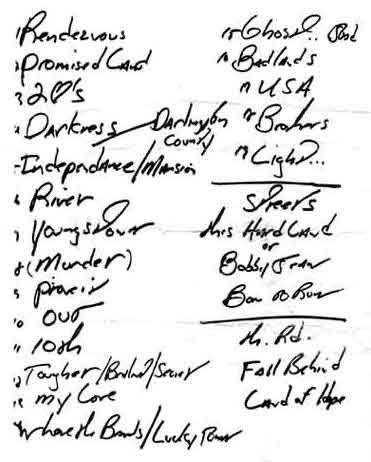 1 Rendezvous
2 Promised Land
3 2 ♡'s
4 Darkness / Darlington County
5 Independance/Mansion
6 River
7 Youngstown
8 (Murder)
9 Prove it
10 Out
11 10th
12 Tougher/Brilliant/Secret
13 My Love
14 Where the Bands/Lucky Town
15 Ghost...
16 Badlands
17 USA
18 Brothers
19 Light...
Streets
this Hard Land
or
Bobby Jean
Born to Run
Th. Rd.
Fall Behind
Land of Hope